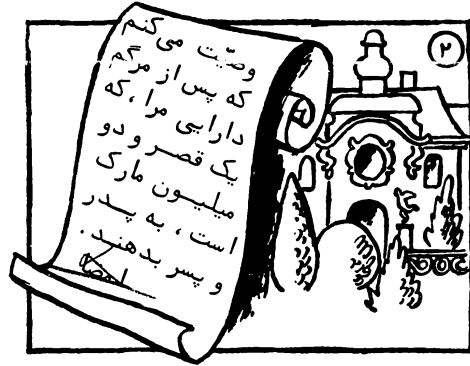 ۲
وصیّت می‌کنم
که پس از مرگم
دارایی مرا، که
یک قصر و دو
میلیون مارک
است، به پدر
و پسر بدهند.
امضا